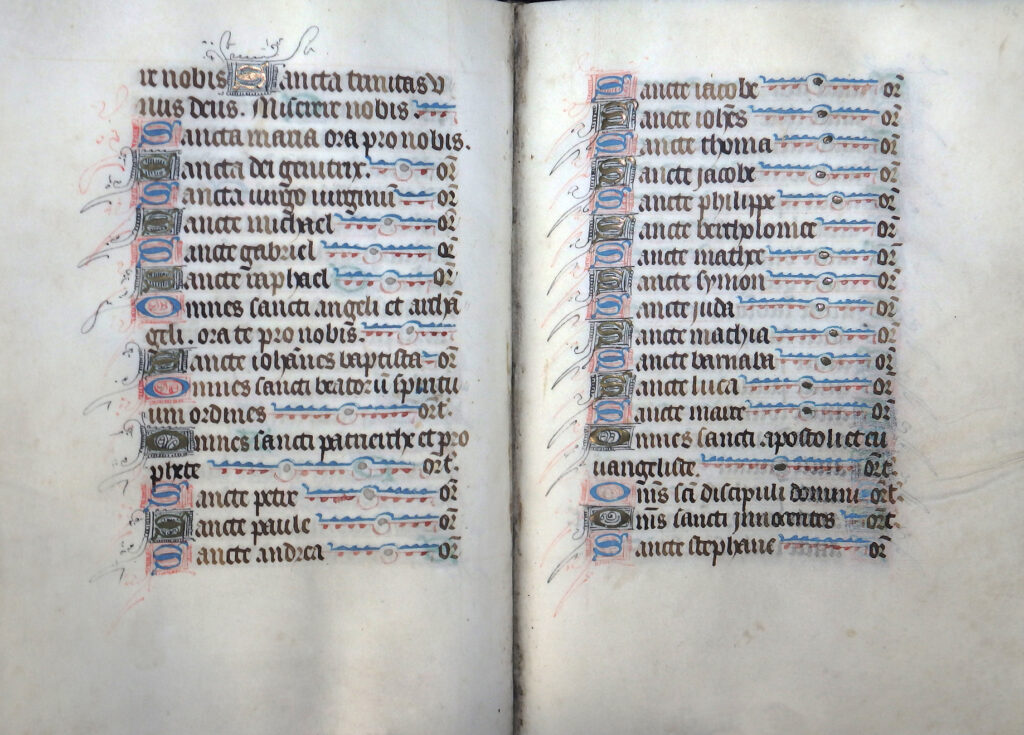 re nobis Sancta trinitas v
nus deus. Miserere nobis.
Sancta maria ora pro nobis.
Sancta dei genitrix. or
Sancta virgo virginū or
Sancte michael or
Sancte gabriel or
Sancte raphael or
Omnes sancti angeli et archā
geli. orate pro nobis.
Sancte iohānes baptista or
Omnes sancti beatorū spiritu
um ordines ort.
Omnes sancti patriarche et pro
phete ort.
Sancte petre or
Sancte paule or
Sancte andrea or
Sancte iacobe or
Sancte ioh̄es or
Sancte thoma or
Sancte jacobe or
Sancte philippe or
Sancte bertholomee or
Sancte mathee or
Sancte symon or
Sancte juda or
Sancte mathia or
Sancte barnaba or
Sancte luca or
Sancte marce or
Omnes sancti apostoli et eu
uangeliste. ort.
Om̄s sc̄i discipuli domini ort.
Om̄s sancti innocentes ort.
Sancte stephane or